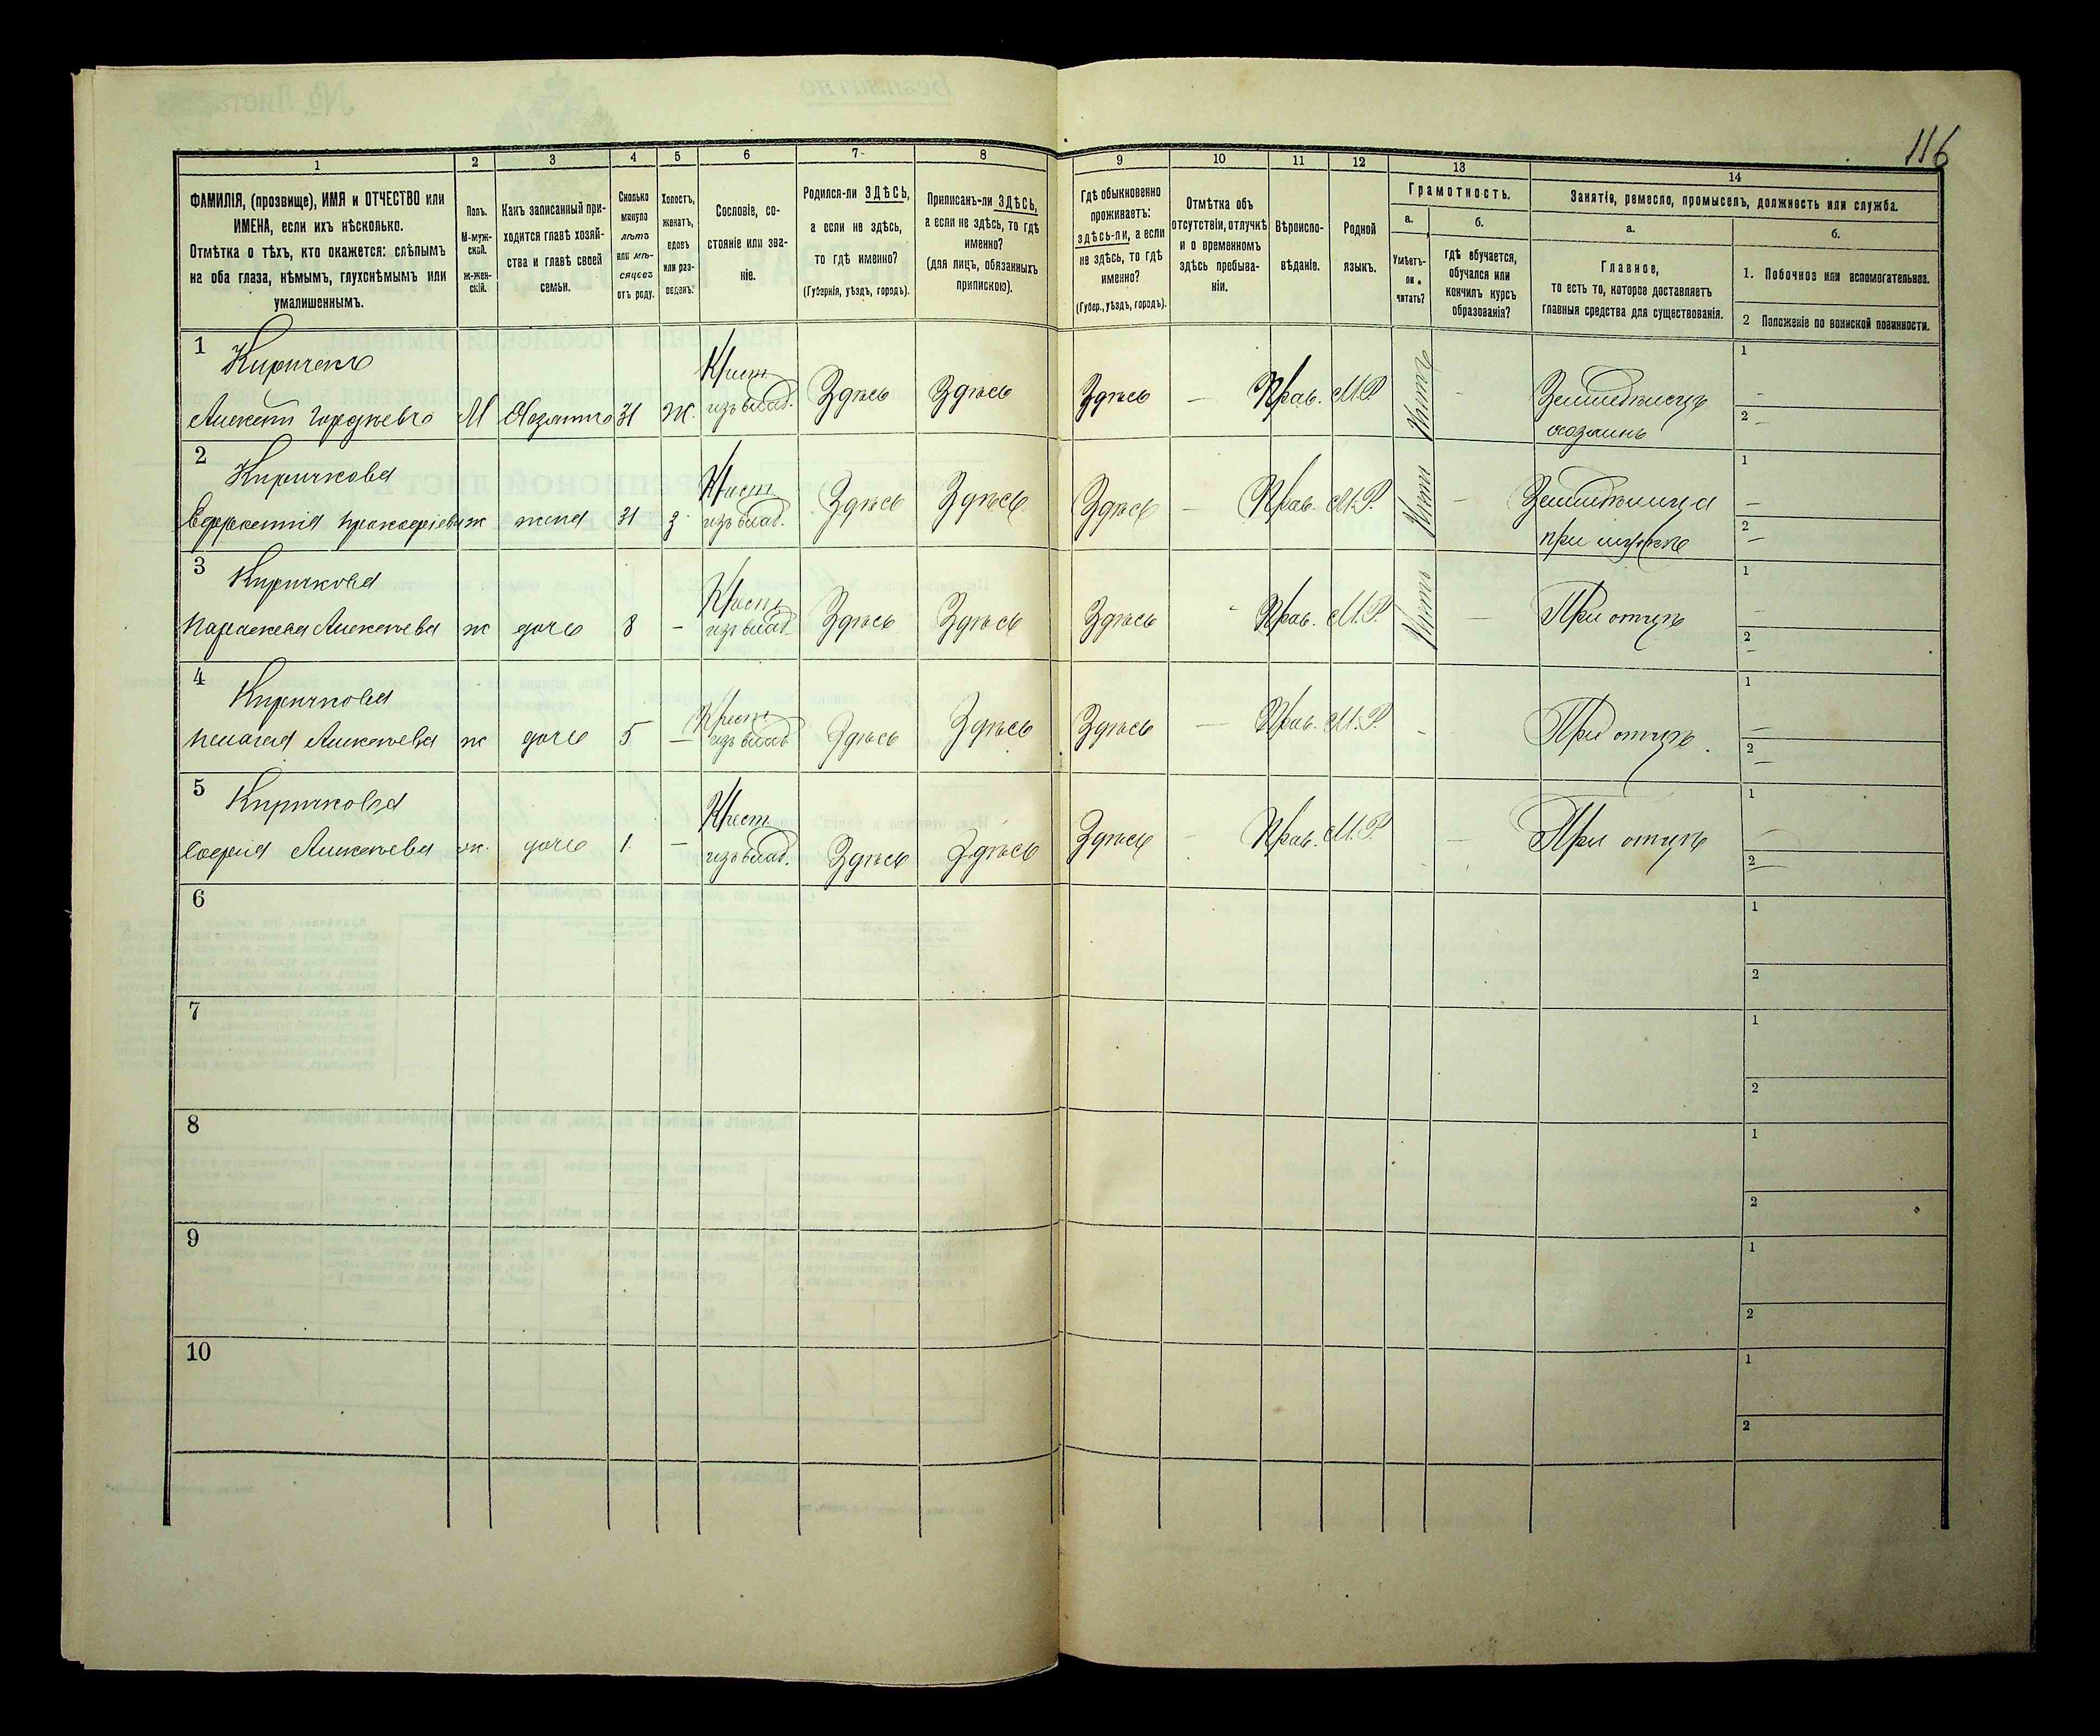 116
1 2 3 4 5 6 7 8 9 10 11 12 13 14
ФАМИЛІЯ, (прозвище), ИМЯ и ОТЧЕСТВО или
ИМЕНА, если ихъ нѣсколько.
Отмѣтка о тѣхъ, кто окажется: слѣпымъ
на оба глаза, нѣмымъ, глухснѣмымъ или
умалишеннымъ.
Полъ.
М-муж-
ской.
ж-жен-
скій.
Какъ записанный при-
ходится главѣ хозяй-
ства и главѣ своей
семьи.
Сколько
минуло
лѣтъ
или мѣ-
сяцевъ
отъ роду.
Холостъ,
женатъ,
вдовъ
или раз-
веденъ.
Сословіе, со-
стояніе или зва-
ніе.
Родился-ли ЗДѢСЬ,
а если не здѣсь,
то гдѣ именно?
(Губернія, уѣздъ, городъ).
Приписанъ-ли ЗДѢСЬ,
а если не здѣсь, то гдѣ
именно?
(для лицъ, обязанныхъ
припискою).
Гдѣ обыкновенно
проживаетъ:
здѣсь-ли, а если
не здѣсь, то гдѣ
именно?
(Губер., уѣздъ, городъ).
Отмѣтка объ
отсутствіи, отлучкѣ
и о временномъ
здѣсь пребыва-
ніи.
Вѣроиспо-
вѣданіе.
Родной
языкъ.
Грамотность.
а.
Умѣетъ-
ли
читать?
б.
гдѣ обучается,
обучался или
кончилъ курсъ
образованія?
Занятіе, ремесло, промыселъ, должность или служба.
а.
Главное,
то есть то, которое доставляетъ
главныя средства для существованія.
б.
1. Побочное или вспомогательное.
2 Положеніе по воинской повинности.
1 Киричекъ Крест. 1
Алексѣй Гордѣевъ М Хозяинъ 31 Ж. изъ влад. Здѣсь Здѣсь Здѣсь — Прав. М.Р. — Земледѣлецъ
хозяинъ 2 —
2 Киричкова Крест. 1
жена 31 З изъ влад. Здѣсь Здѣсь Здѣсь — Прав. М.Р. Нѣтъ — —
при мужѣ 2 —
3 Киричкова Крест. 1
Параскева Алексѣева ж дочь 8 — изъ влад. Здѣсь Здѣсь Здѣсь - Прав. М.Р. Нѣтъ — При отцѣ —
2 -
4 Киричкова Крест. 1
Пелагея Алексѣева ж дочь 5 — изъ влад. Здѣсь Здѣсь Здѣсь — Прав. М.Р. - При отцѣ. —
2 —
5 Киричкова Крест. 1
Софія Алексѣева ж. дочь 1. — изъ влад. Здѣсь Здѣсь Здѣсь - Прав. М.Р. — При отцѣ —
2 —
6 1
2
7 1
2
8 1
2
9 1
2
10 1
2